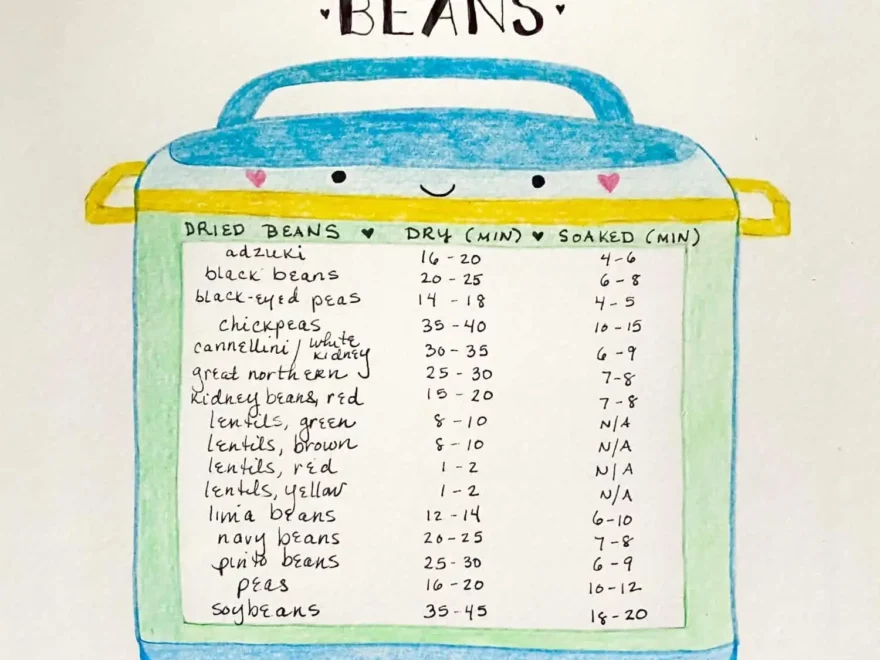 BEANS
DRIED BEANS ♥ DRY (MIN) ♥ SOAKED (MIN)
adzuki 16 - 20 4 - 6
black beans 20 - 25 6 - 8
black-eyed peas 14 - 18 4 - 5
chickpeas 35 - 40 10 - 15
cannellini / white kidney 30 - 35 6 - 9
great northern 25 - 30 7 - 8
kidney beans, red 15 - 20 7 - 8
lentils, green 8 - 10 N/A
lentils, brown 8 - 10 N/A
lentils, red 1 - 2 N/A
lentils, yellow 1 - 2 N/A
lima beans 12 - 14 6 - 10
navy beans 20 - 25 7 - 8
pinto beans 25 - 30 6 - 9
peas 16 - 20 10 - 12
soybeans 35 - 45 18 - 20